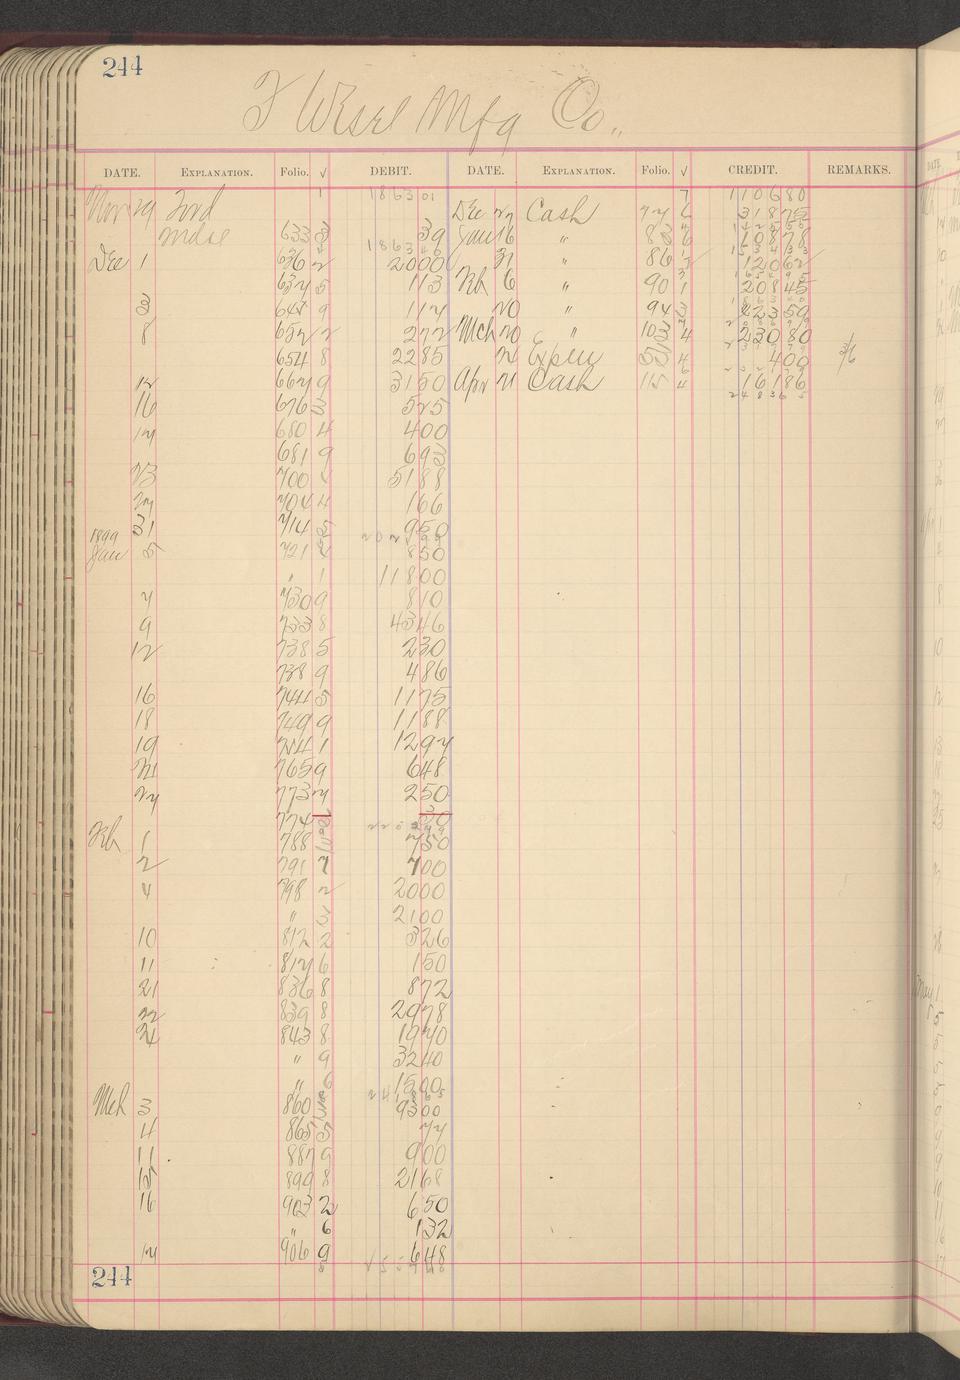 244
Mfg Co.,
DATE. EXPLANATION. Folio. √ DEBIT. DATE. EXPLANATION. Folio. √ CREDIT. REMARKS.
Nov 29 Ford 1 1863 01 7 1106 80
Dec 27 Cash 77 6 318 75
Mdse 633 3 39 Jan 16 " 6 108 78
Dec 1 636 2 20 00 31 " 86 120 62
637 5 1 13 Feb 6 " 90 1 208 45
3 9 1 17 20 " 94 3 423 59
8 652 2 2 72 Mch 20 " 103 4 230 80
654 8 22 85 Expen 4 4 00 3/6
12 667 9 31 50 Apr 21 Cash 115 4 161 86
16 676 3 5 25 2483 65
17 680 4 4 00
681 9 6 93
23 700 √ 51 88
27 704 4 1 66
31 714 5 9 50
1899
Jan 5 721 8 50
" 1 118 00
7 730 9 8 10
9 733 8 43 46
12 738 5 2 30
738 9 4 86
16 744 5 11 75
18 749 9 11 88
19 754 1 12 97
21 765 9 6 48
27 773 7 2 50
774 30
Feb 1 788 7 50
2 791 7 7 00
4 798 2 20 00
" 3 21 00
10 812 2 3 26
11 817 6 1 50
21 836 8 8 72
22 839 8 29 78
24 843 8 19 70
" 9 32 40
" 6 15 00
Mch 3 860 93 00
4 865 5 77
11 887 9 9 00
15 899 8 21 68
16 903 2 6 50
" 6 1 32
17 906 9 6 48
244